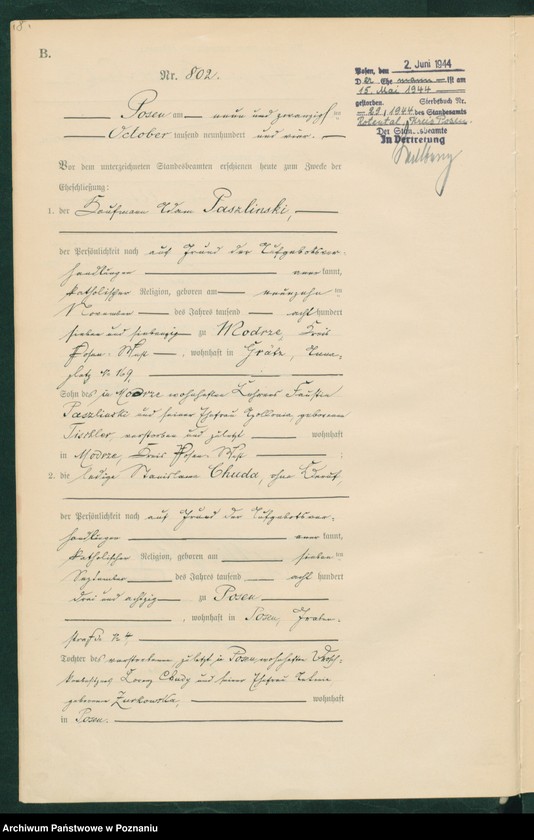 B.
Nr. 802.
Posen am neun und zwanzigsten
October tausend neunhundert und vier.
Vor dem unterzeichneten Standesbeamten erschienen heute zum Zwecke der
Eheschließung:
1. der Kaufmann Adam Paszlinski,
der Persönlichkeit nach auf Grund der Aufgebotsver-
handlungen anerkannt,
katholischer Religion, geboren am neunzehnten
November des Jahres tausend acht hundert
sieben und siebenzig zu Modrze, Kreis
Posen-West, wohnhaft in Grätz,
platz № 169,
Sohn des in Modrze wohnhaften Lehrers Faustin
Paszlinski und seiner Ehefrau Apollonia, geborenen
Tischler, verstorben und zuletzt wohnhaft
in Modrze, Kreis Posen-West ;
2. die ledige Stanislawa Chuda, ohne Beruf,
der Persönlichkeit nach auf Grund der Aufgebotsver-
handlungen anerkannt,
katholischer Religion, geboren am siebenten
September des Jahres tausend acht hundert
drei und achtzig zu Posen
, wohnhaft in Posen,
straße 24
Tochter des verstorbenen, zuletzt in Posen wohnhaften
Chudy und seiner Ehefrau
geborenen Zurkowska, wohnhaft
in Posen.
Posen, den 2. Juni 1944
D Ehe ist am
15. Mai 1944
gestorben. Sterbebuch Nr.
29/1944 des Standesamts
Rolental, Kreis Posen.
Der Standesbeamte
In Vertretung
Archiwum Państwowe w Poznaniu
Archiwum Państwowe w Poznaniu